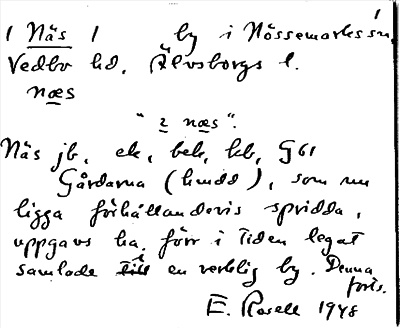 1
( Näs ) by i Nössemarks sn
Vedbo hd. Älvsborgs l.
næs
" 2 næs ".
Näs jb, ek, bek, kb, G61
Gårdarna (hmdd), som nu
ligga förhållandevis spridda,
uppgavs ha förr i tiden legat
samlade i en verklig by. Denna
forts.
E. Rosell 1948